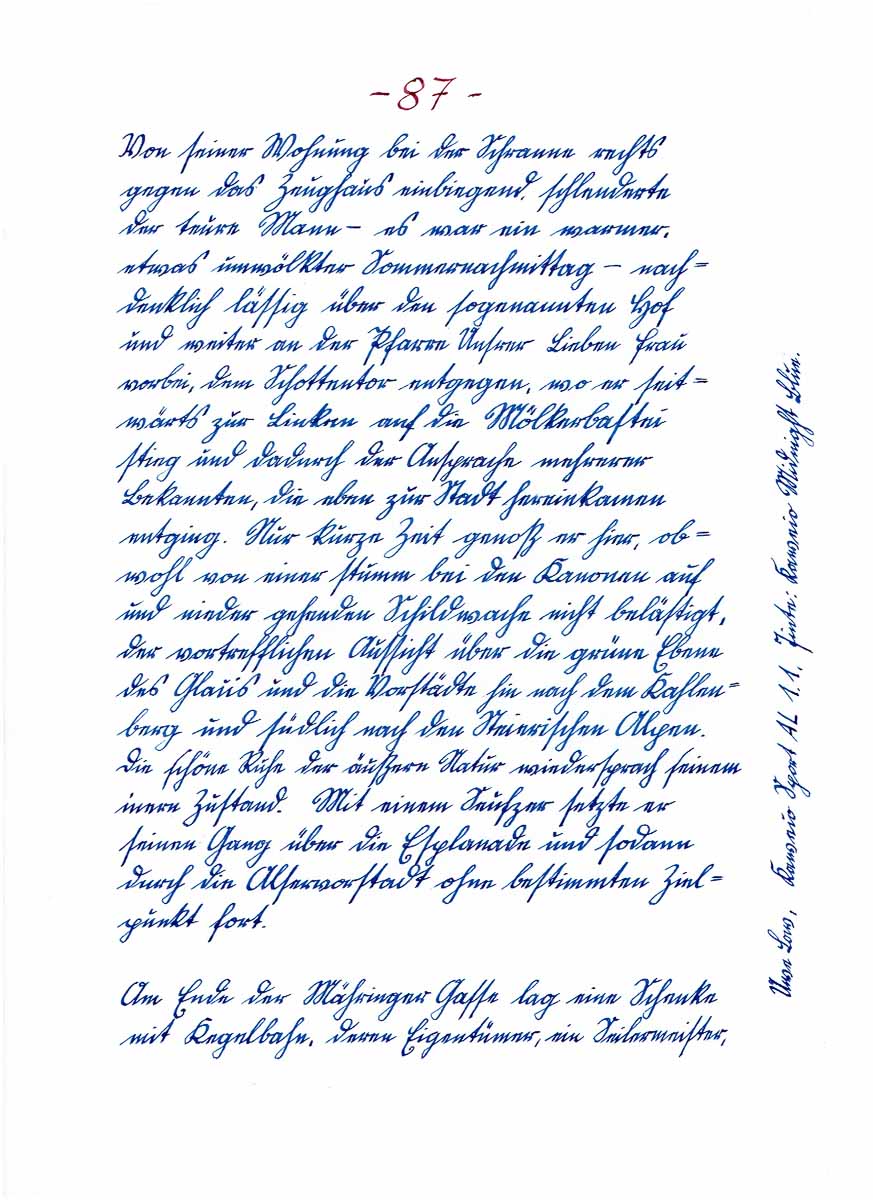 - 87 -
Von seiner Wohnung bei der Schranne rechts
gegen das Zeughaus einbiegend, schlenderte
der teure Mann - es war ein warmer,
etwas umwölkter Sommernachmittag - nach=
denklich lässig über den sogenannten Hof
und weiter an der Pfarre Unsrer Lieben Frau
vorbei, dem Schottentor entgegen, wo er seit=
wärts zur Linken auf die Mölkerbastei
stieg und dadurch der Ansprache mehrerer
Bekannten, die eben zur Stadt hereinkamen
entging. Nur kurze Zeit genoß er hier, ob=
wohl von einer stumm bei den Kanonen auf
und nieder gehenden Schildwache nicht belästigt,
der vortrefflichen Aussicht über die grüne Ebene
des Glacis und die Vorstädte hin nach dem Kahlen=
berg und südlich nach den Steierischen Alpen.
Die schöne Ruhe der äußern Natur wiedersprach seinem
innern Zustand. Mit einem Seufzer setzte er
seinen Gang über die Esplanade und sodann
durch die Alservorstadt ohne bestimmten Ziel=
punkt fort.
Am Ende der Währinger Gasse lag eine Schenke
mit Kegelbahn, deren Eigentümer, ein Seilermeister,
Kaweco Sport AL 1.1, Tinte: Kaweco Midnight Blue.